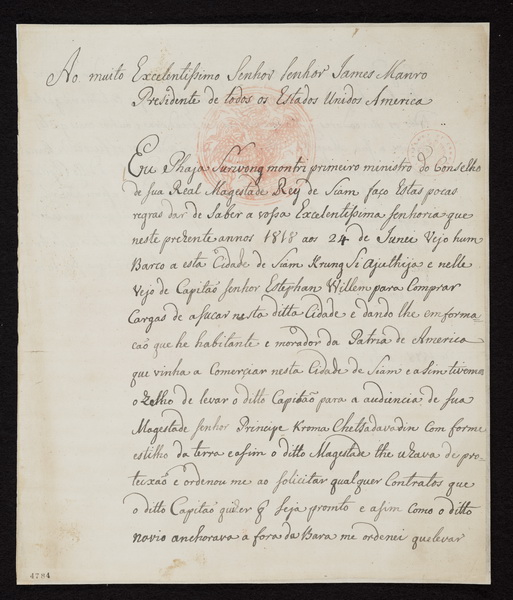 Ao muito Excelentissimo Senhor Senhor James Manro
Presidente de todos os Estados Unidos America
Eu Phaja Surivong montri primeiro ministro do Conselho
de sua Real Magestade Rey de Siam faço Estas pocas
regras dar de Saber a vossa Excelentissima senhoria que
neste prezente annos 1818 aos 24 de Junei Vejo hum
Barco a esta Cidade de Siam Krung Si Ajuthija e nelle
Vejo de Capitaõ senhor Estephan Willem para Comprar
Cargas de asucar nesta ditta Cidade e dando lhe emforma-
caõ que he habitante e morador da Patria de America
que vinha a Comerçiar nesta Cidade de Siam e asim tivemos
o Zelho de levar o ditto Capitaõ para a audiencia de sua
Magestade senhor Principe Kroma Chetsadavadin Com forme
estilho da terra e asim o ditto Magestade lhe uzava de pro-
teixaõ e ordenou me ao solicitar qualquer Contratos que
o ditto Capitaõ quizer q̃ seja promto e asim Como o ditto
novio anchorava a fora da Bara me ordenei que levar
4784